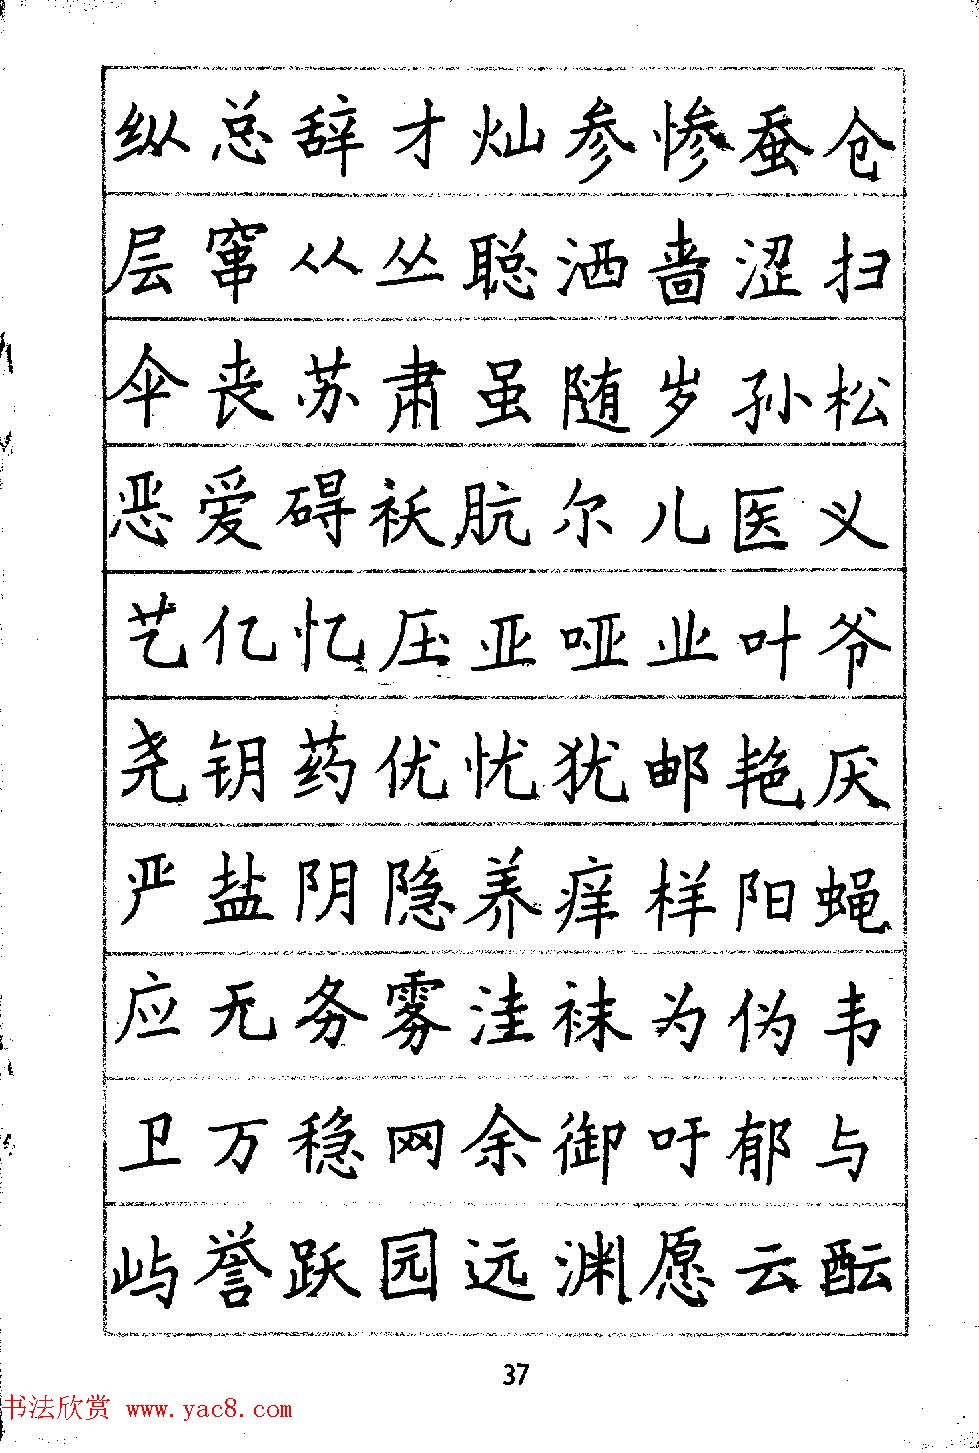 纵总辞才灿参惨蚕仓
层窜从丛聪洒啬涩扫
伞丧苏肃虽随岁孙松
恶爱碍袄肮尔儿医义
艺亿忆压亚哑业叶爷
尧钥药优忧犹邮艳厌
严盐阴隐养痒样阳蝇
应无务雾洼袜为伪韦
卫万稳网余御吁郁与
屿誉跃园远渊愿云酝
37
书法欣赏 www.yac8.com